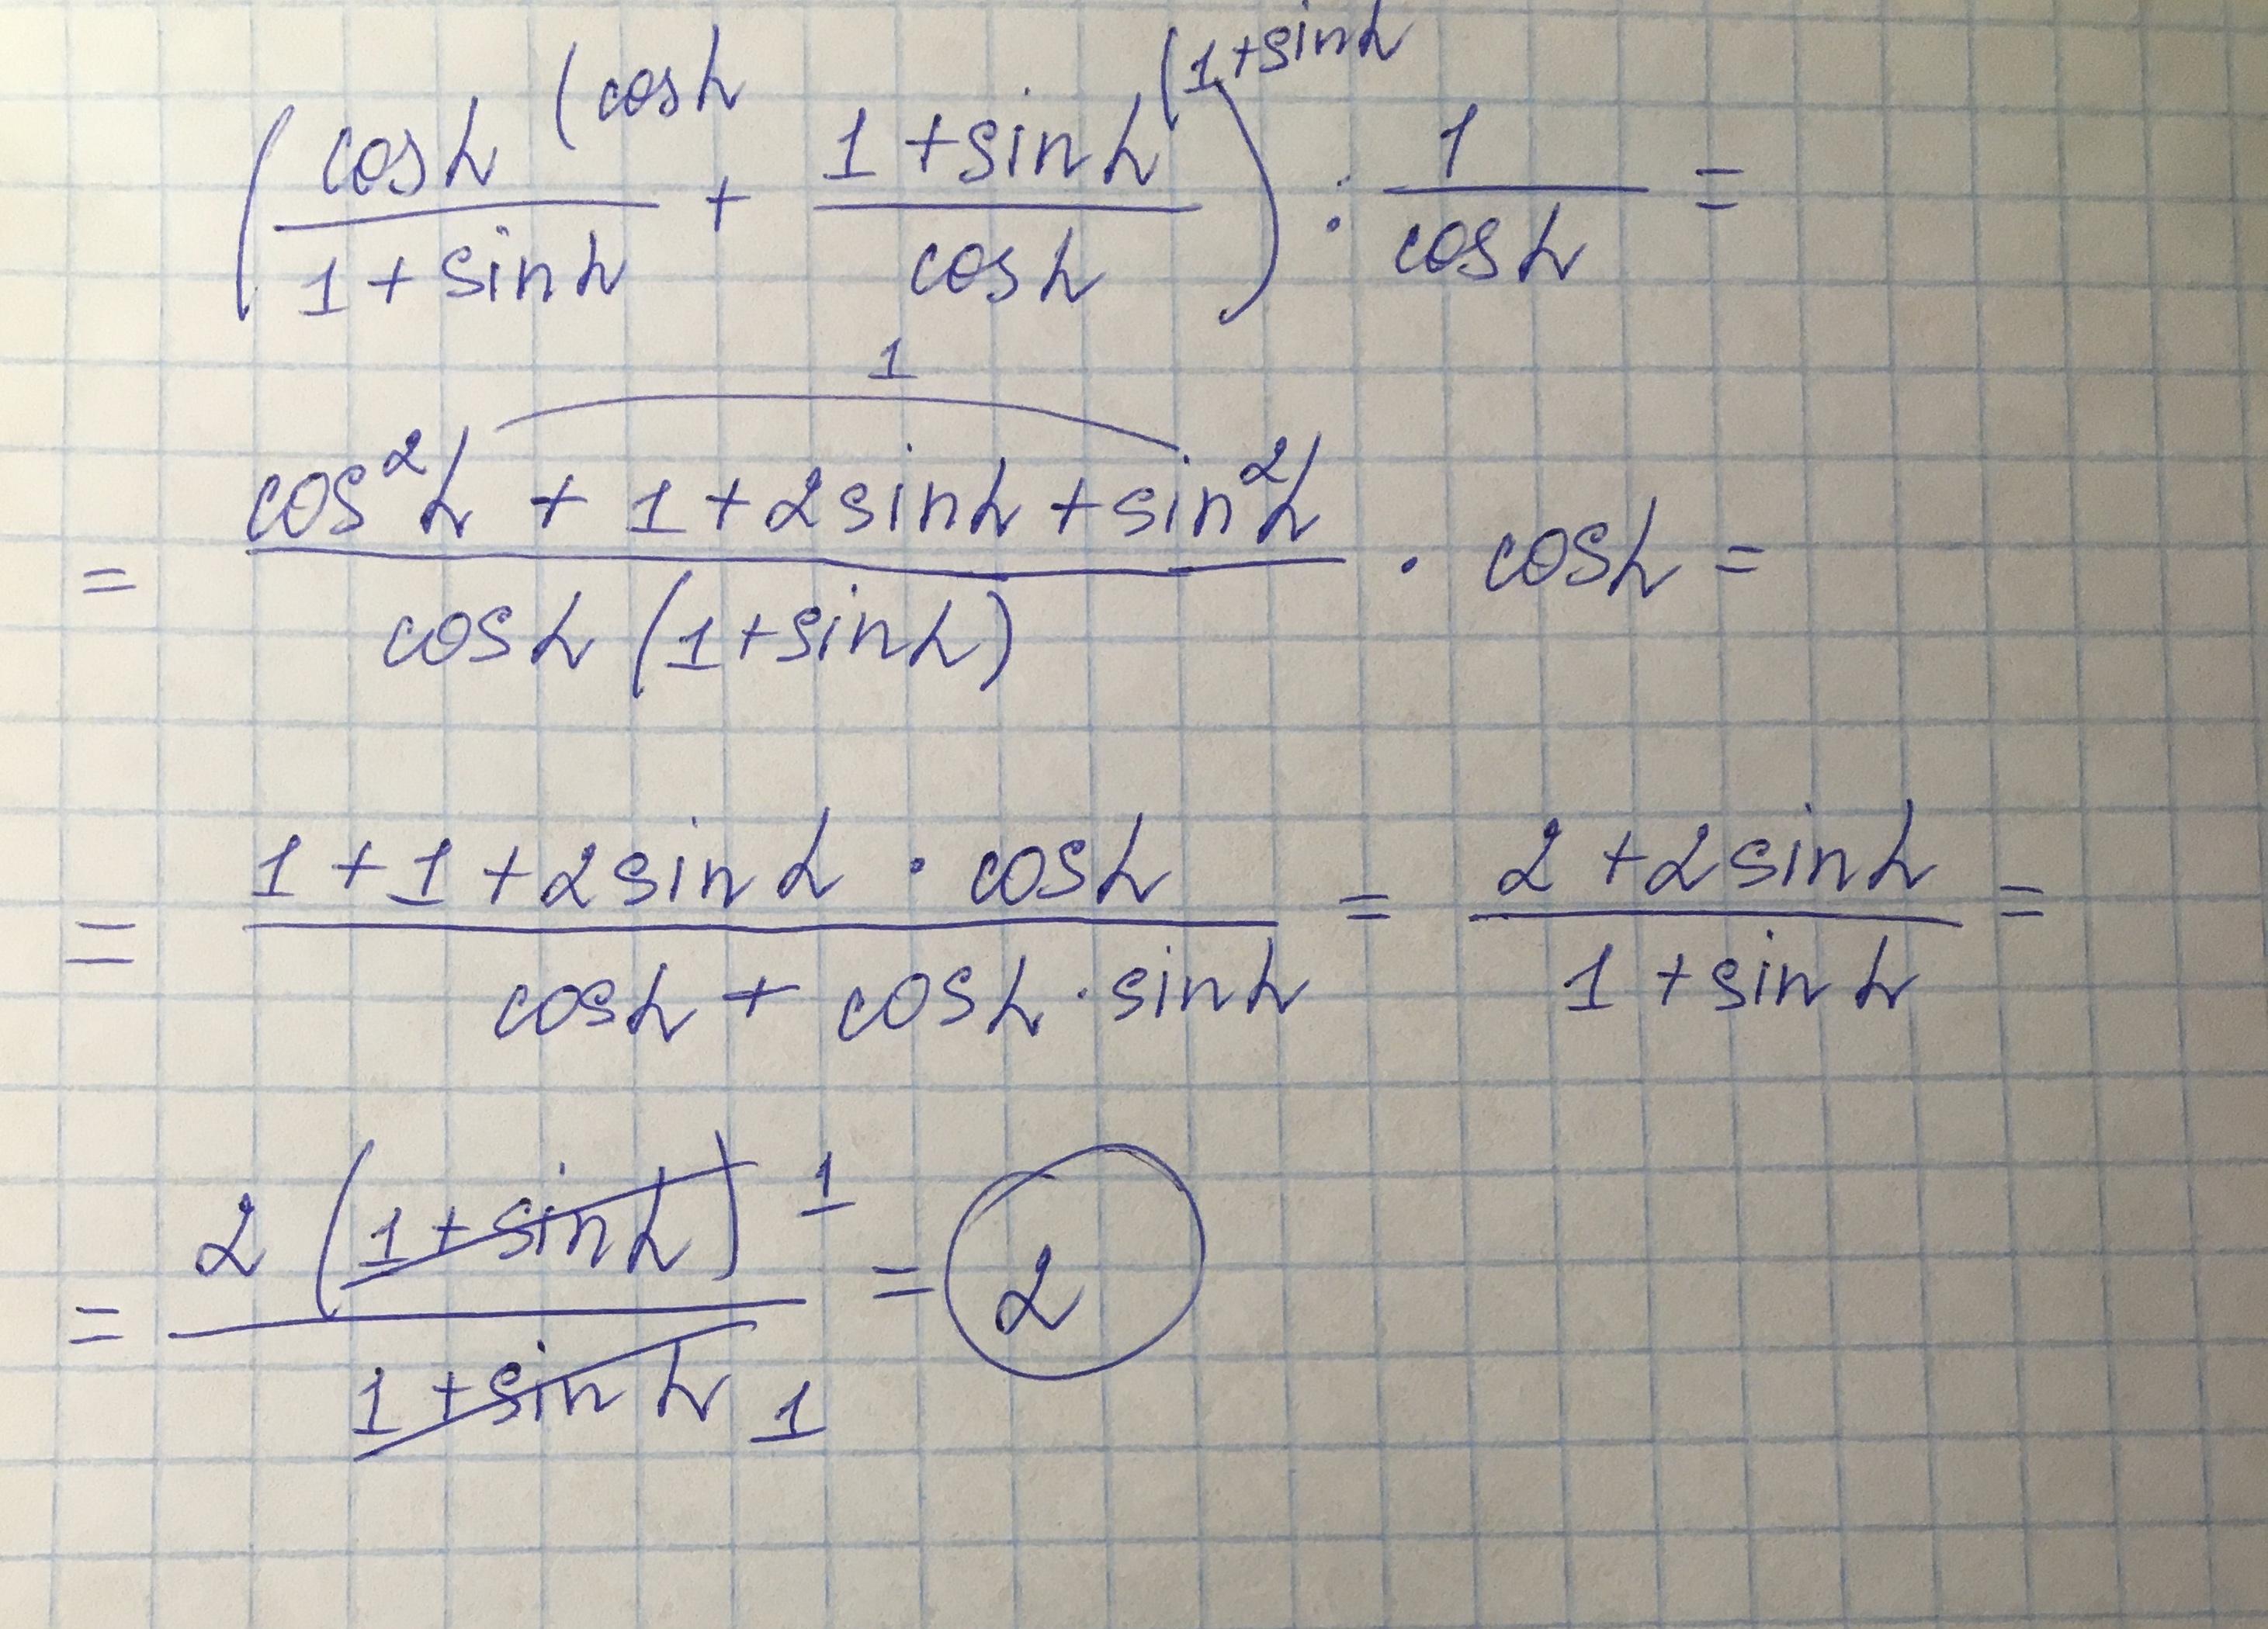 (cosα (cosα / 1 + sinα + 1 + sinα (1 + sinα / cosα) : 1 / cosα =
1
= cos²α + 1 + 2 sinα + sin²α / cosα (1 + sinα) · cosα =
= 1 + 1 + 2 sinα · cosα / cosα + cosα · sinα = 2 + 2 sinα / 1 + sinα =
= 2 (1 + sinα) 1 / 1 + sinα 1 = 2